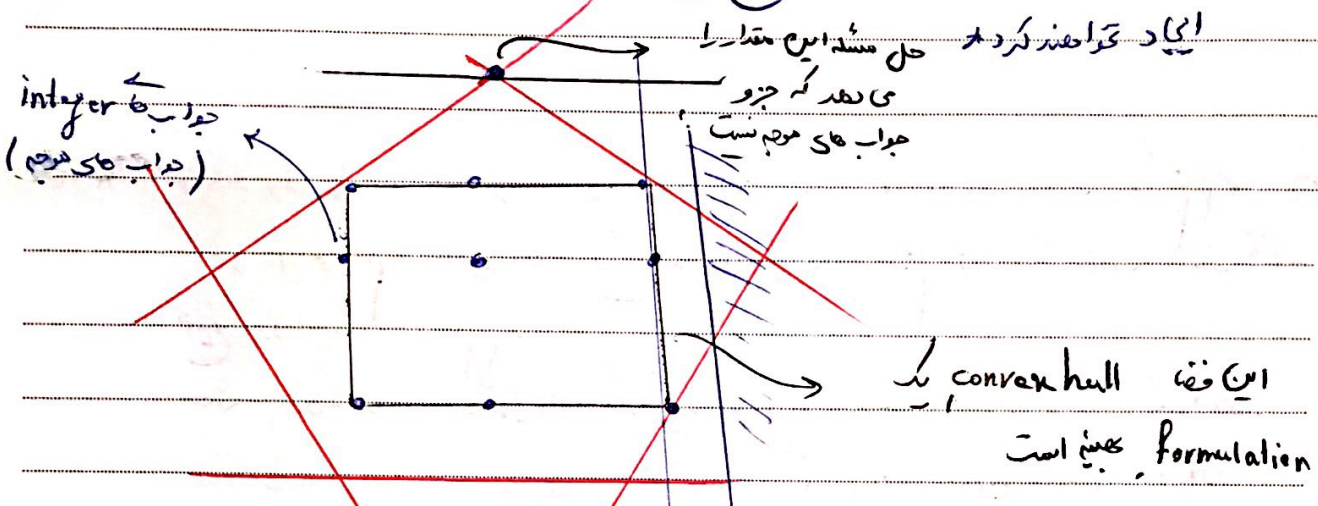 ایجاد نخواهند کرد *
حل مسئله این مقدار را
می دهد که جزو
جواب های موجه نیست
جواب های integer
(جواب های موجه)
این فضا convex hull یک
formulation بهینه است